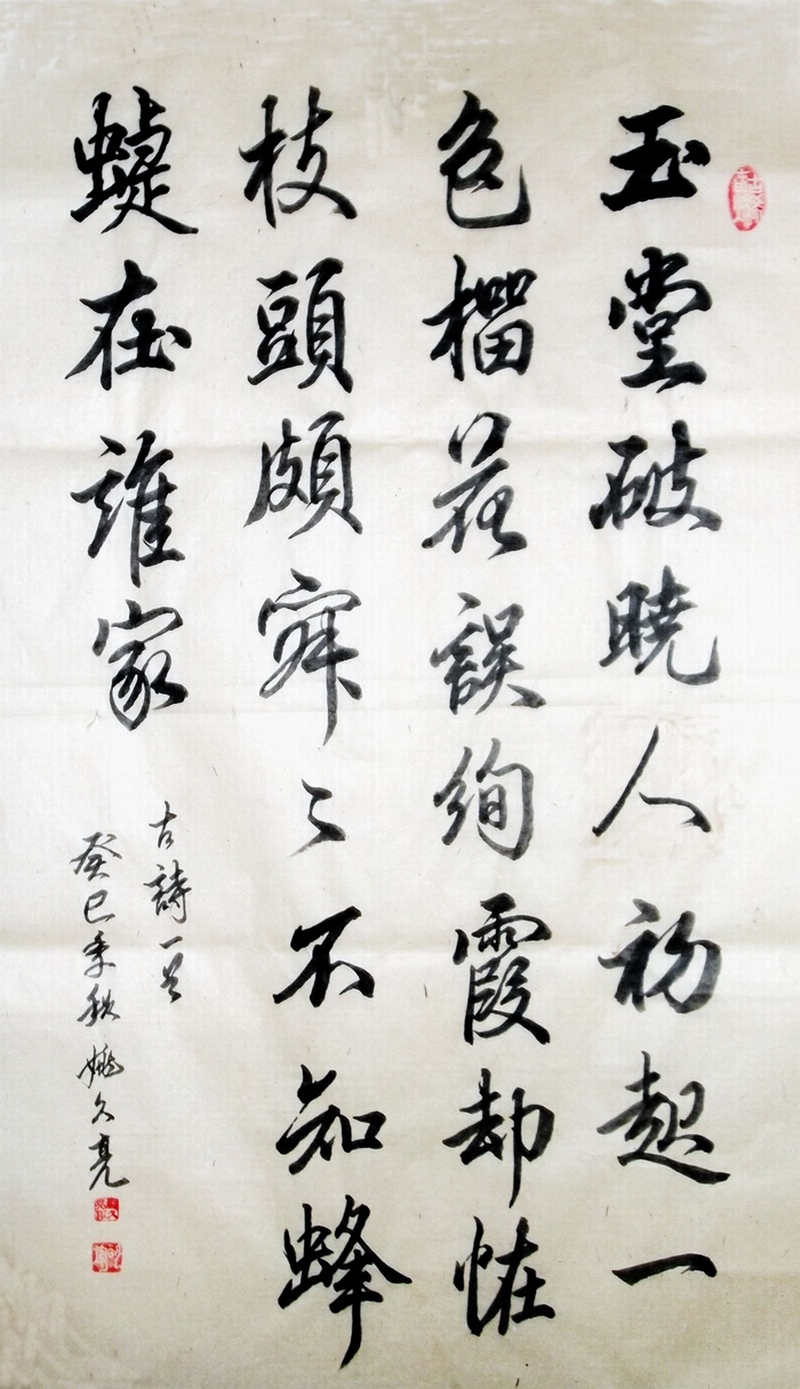 玉堂破曉人初起一
色榴花誤絢霞却恠
枝頭頗寂〻不知蜂
蝶在誰家
古詩一首
癸巳季秋姚久亮